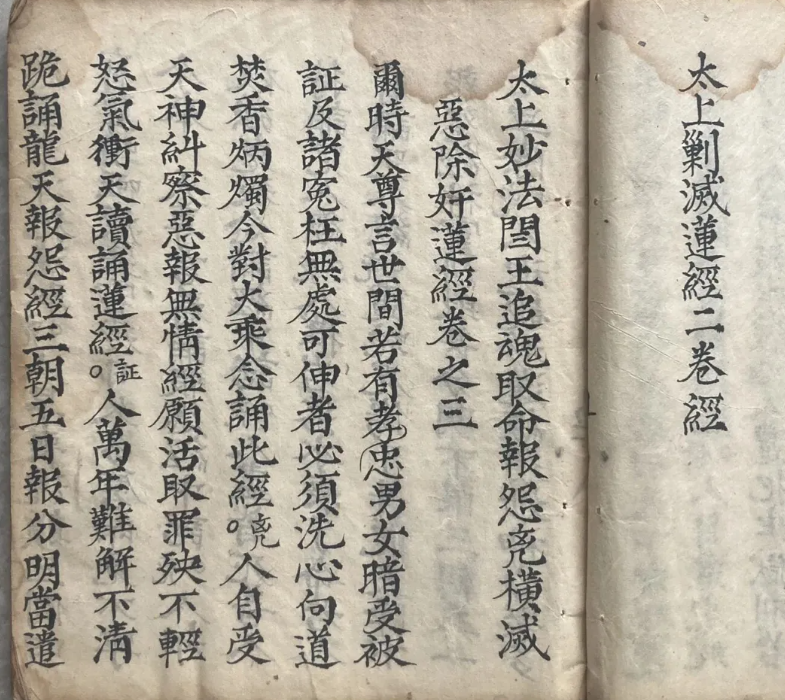 太上剿滅蓮經二卷經
太上妙法閆王追魂取命報怨兇橫滅
惡除奸蓮經卷之三
爾時天尊言世間若有孝忠男女暗受被
証及諸寃枉無處可伸者必須洗心向道
焚香炳燭今對大乘念誦此經。兇人自受
天神糾察惡報無情經願活取罪殃不輕
怒氣衝天讀誦蓮經。証人萬年難解不清
跪誦龍天報怨經三朝五日報分明當遣